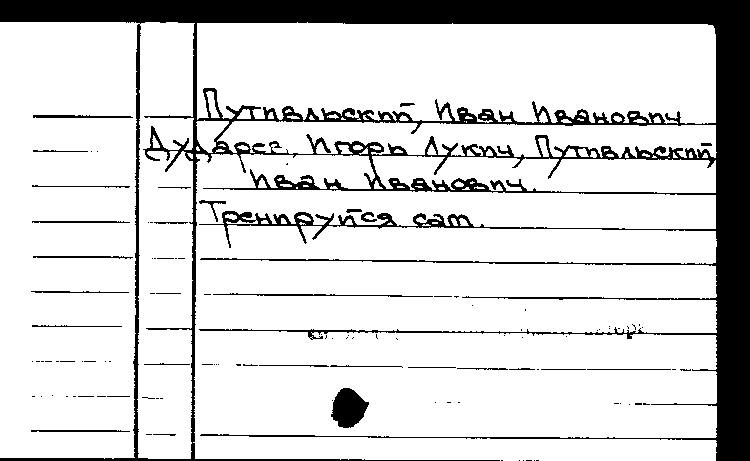 Путивльский, Иван Иванович
Дударев, Игорь Лукич, Путивльский,
Иван Иванович.
Тренируйся сам.